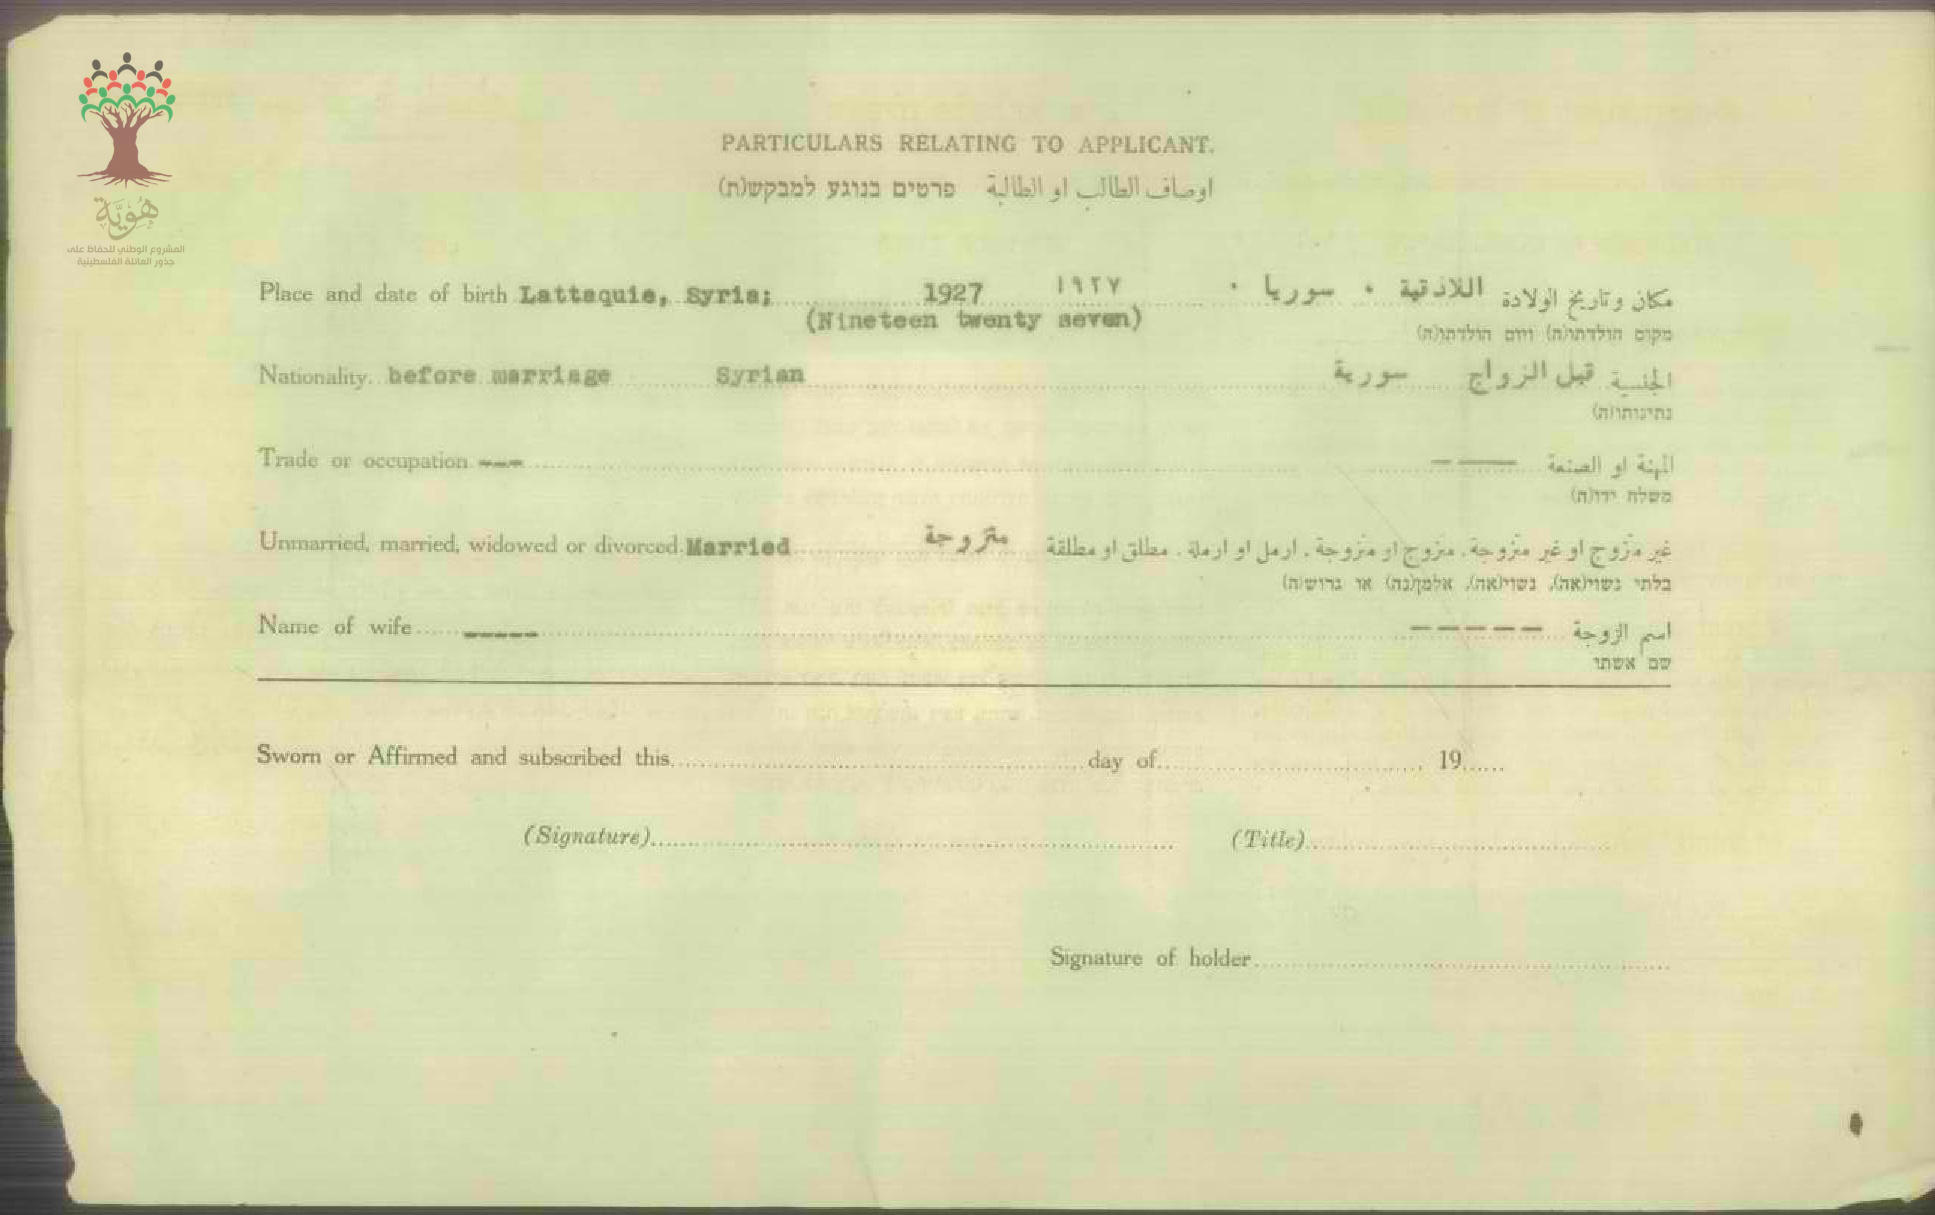 هُوِيَّة
المشروع الوطني للحفاظ على
جذور العائلة الفلسطينية
PARTICULARS RELATING TO APPLICANT.
اوصاف الطالب او الطالبة פרטים בנוגע למבקש(ת)
Place and date of birth Lattaquie, Syria; 1927 ١٩٢٧ مكان وتاريخ الولادة اللاذقية • سوريا •
(Nineteen twenty seven)
מקום הולדתו(ה) ויום הולדתו(ה)
Nationality. before marriage Syrian الجنسية قبل الزواج سورية
נתינותו(ה)
Trade or occupation --- المهنة او الصنعة — —
משלח ידו(ה)
Unmarried, married, widowed or divorced. Married متزوجة غير متزوج او غير متزوجة . متزوج او متزوجة . ارمل او ارملة . مطلق او مطلقة
בלתי נשוי(אה), נשוי(אה), אלמן(נה) או גרוש(ה)
Name of wife ----- اسم الزوجة - - - - -
שם אשתו
Sworn or Affirmed and subscribed this day of 19
(Signature) (Title)
Signature of holder